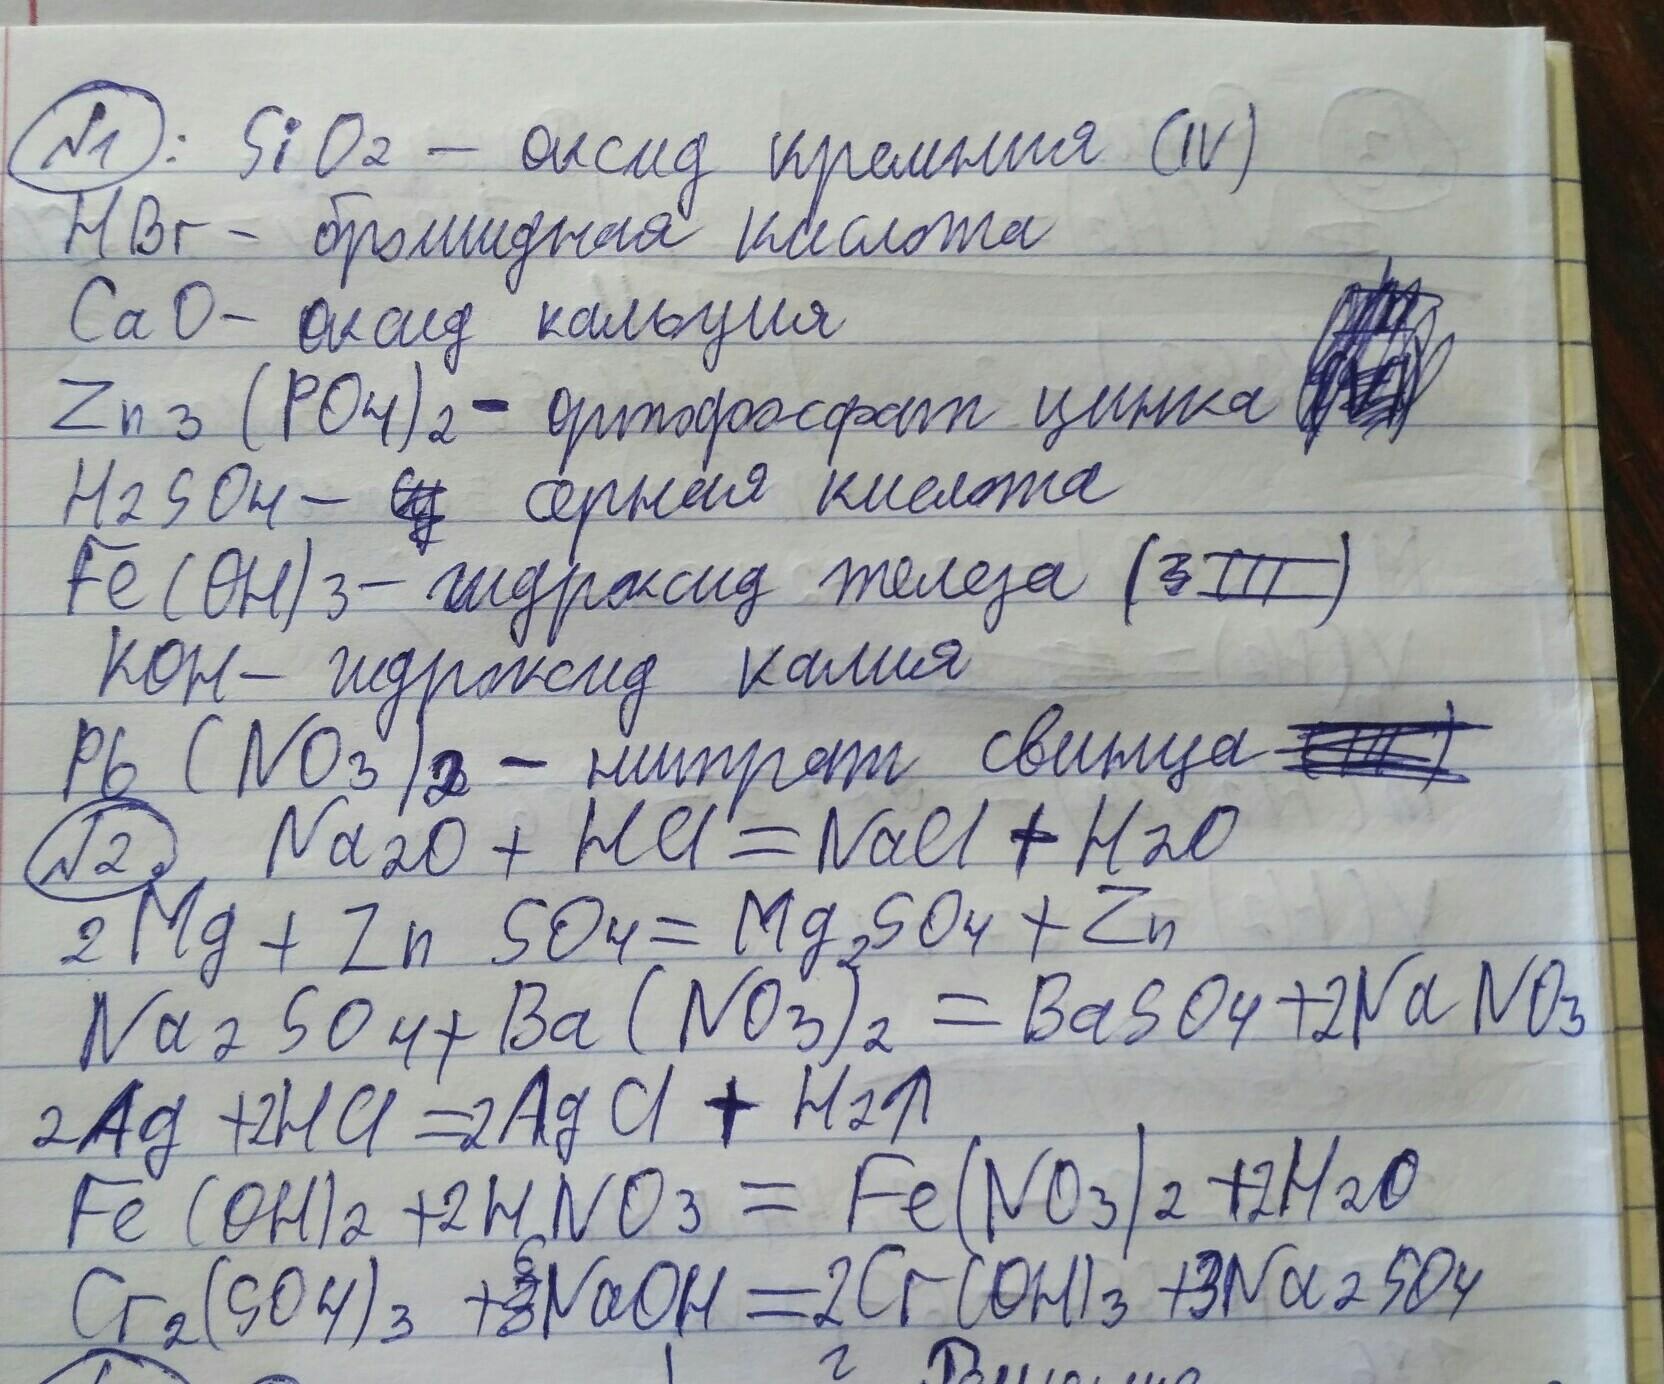 №1: SiO2 – оксид кремния (IV)
HBr – бромидная кислота
CaO – оксид кальция
Zn3(PO4)2 – ортофосфат цинка
H2SO4 – серная кислота
Fe(OH)3 – гидроксид железа (III)
KOH – гидроксид калия
Pb(NO3)2 – нитрат свинца
№2. Na2O + HCl = NaCl + H2O
2Mg + ZnSO4 = Mg2SO4 + Zn
Na2SO4 + Ba(NO3)2 = BaSO4 + 2NaNO3
2Ag + 2HCl = 2AgCl + H2↑
Fe(OH)2 + 2HNO3 = Fe(NO3)2 + 2H2O
Cr2(SO4)3 + 6NaOH = 2Cr(OH)3 + 3Na2SO4